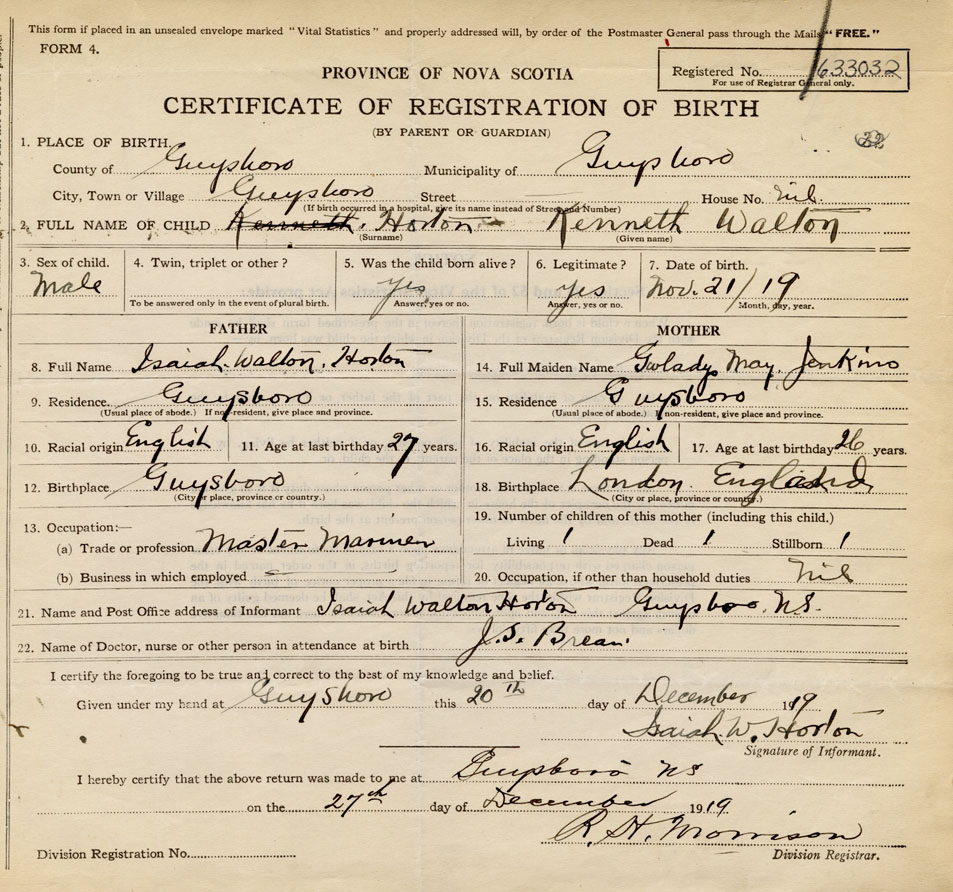 This form if placed in an unsealed envelope marked "Vital Statistics" and properly addressed will, by order of the Postmaster General pass through the Mails "FREE."
FORM 4.
Registered No. 633032
For use of Registrar General only.
PROVINCE OF NOVA SCOTIA
CERTIFICATE OF REGISTRATION OF BIRTH
(BY PARENT OR GUARDIAN)
32
1. PLACE OF BIRTH
County of Guysboro Municipality of Guysboro
City, Town or Village Guysboro Street House No. nil.
(If birth occurred in a hospital, give its name instead of Street and Number)
2. FULL NAME OF CHILD Kenneth. Horton Kenneth Walton
(Surname) (Given name)
3. Sex of child. 4. Twin, triplet or other? 5. Was the child born alive? 6. Legitimate? 7. Date of birth.
Male Yes Yes Nov. 21/19
To be answered only in the event of plural birth. Answer, yes or no. Answer, yes or no. Month, day, year.
FATHER
8. Full Name Isaiah Walton, Horton
9. Residence Guysboro
(Usual place of abode.) If non-resident, give place and province.
10. Racial origin English 11. Age at last birthday 27 years.
12. Birthplace Guysboro
(City or place, province or country.)
13. Occupation:—
(a) Trade or profession Master Mariner
(b) Business in which employed
MOTHER
14. Full Maiden Name Gwladys May, Jenkins
15. Residence Guysboro
(Usual place of abode.) If non-resident, give place and province.
16. Racial origin English 17. Age at last birthday 26 years.
18. Birthplace London. England
(City or place, province or country.)
19. Number of children of this mother (including this child.)
Living 1 Dead 1 Stillborn 1
20. Occupation, if other than household duties Nil
21. Name and Post Office address of Informant Isaiah Walton Horton Guysboro. N.S.
22. Name of Doctor, nurse or other person in attendance at birth J.S. Brean
I certify the foregoing to be true and correct to the best of my knowledge and belief.
Given under my hand at Guysboro this 20th day of December 1919
Isaiah W. Horton
Signature of Informant.
I hereby certify that the above return was made to me at Guysboro NS
on the 27th day of December 1919
R. H. Morrison
Division Registration No. Division Registrar.